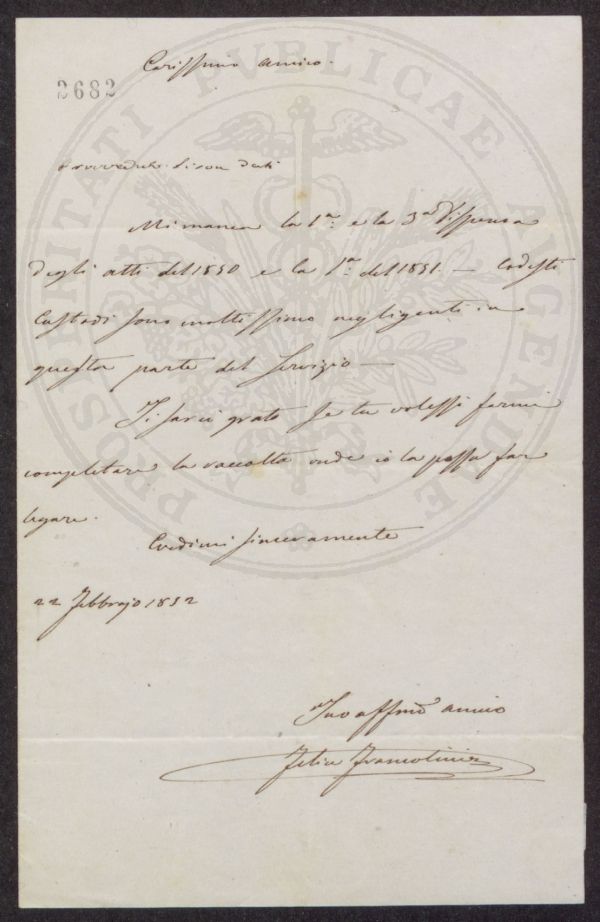 Carissimo amico.
2682
provveduto. si son dati
Mi manca la 1ª. e la 3ª dispensa
degli atti del 1850 e la 1ª. del 1851. — Codesti
Custodi sono moltissimo negligenti in
questa parte del servizio —
Ti sarei grato se tu volessi farmi
completare la raccolta onde io la possa far
legare.
Credimi sinceramente
22 Febbrajo 1852
Tuo affmo amico
Felice Francolini
PROSPERITATI PUBLICAE AUGENDAE